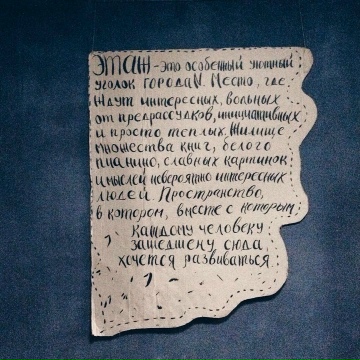 ЭТАЖ - это особенный уютный
уголок города N. Место, где
ждут интересных, вольных
от предрассудков, инициативных
и просто теплых. Жилище
множества книг, белого
пианино, славных картинок
и мыслей невероятно интересных
людей. Пространство,
в котором, вместе с которым
каждому человеку,
зашедшему сюда,
хочется развиваться